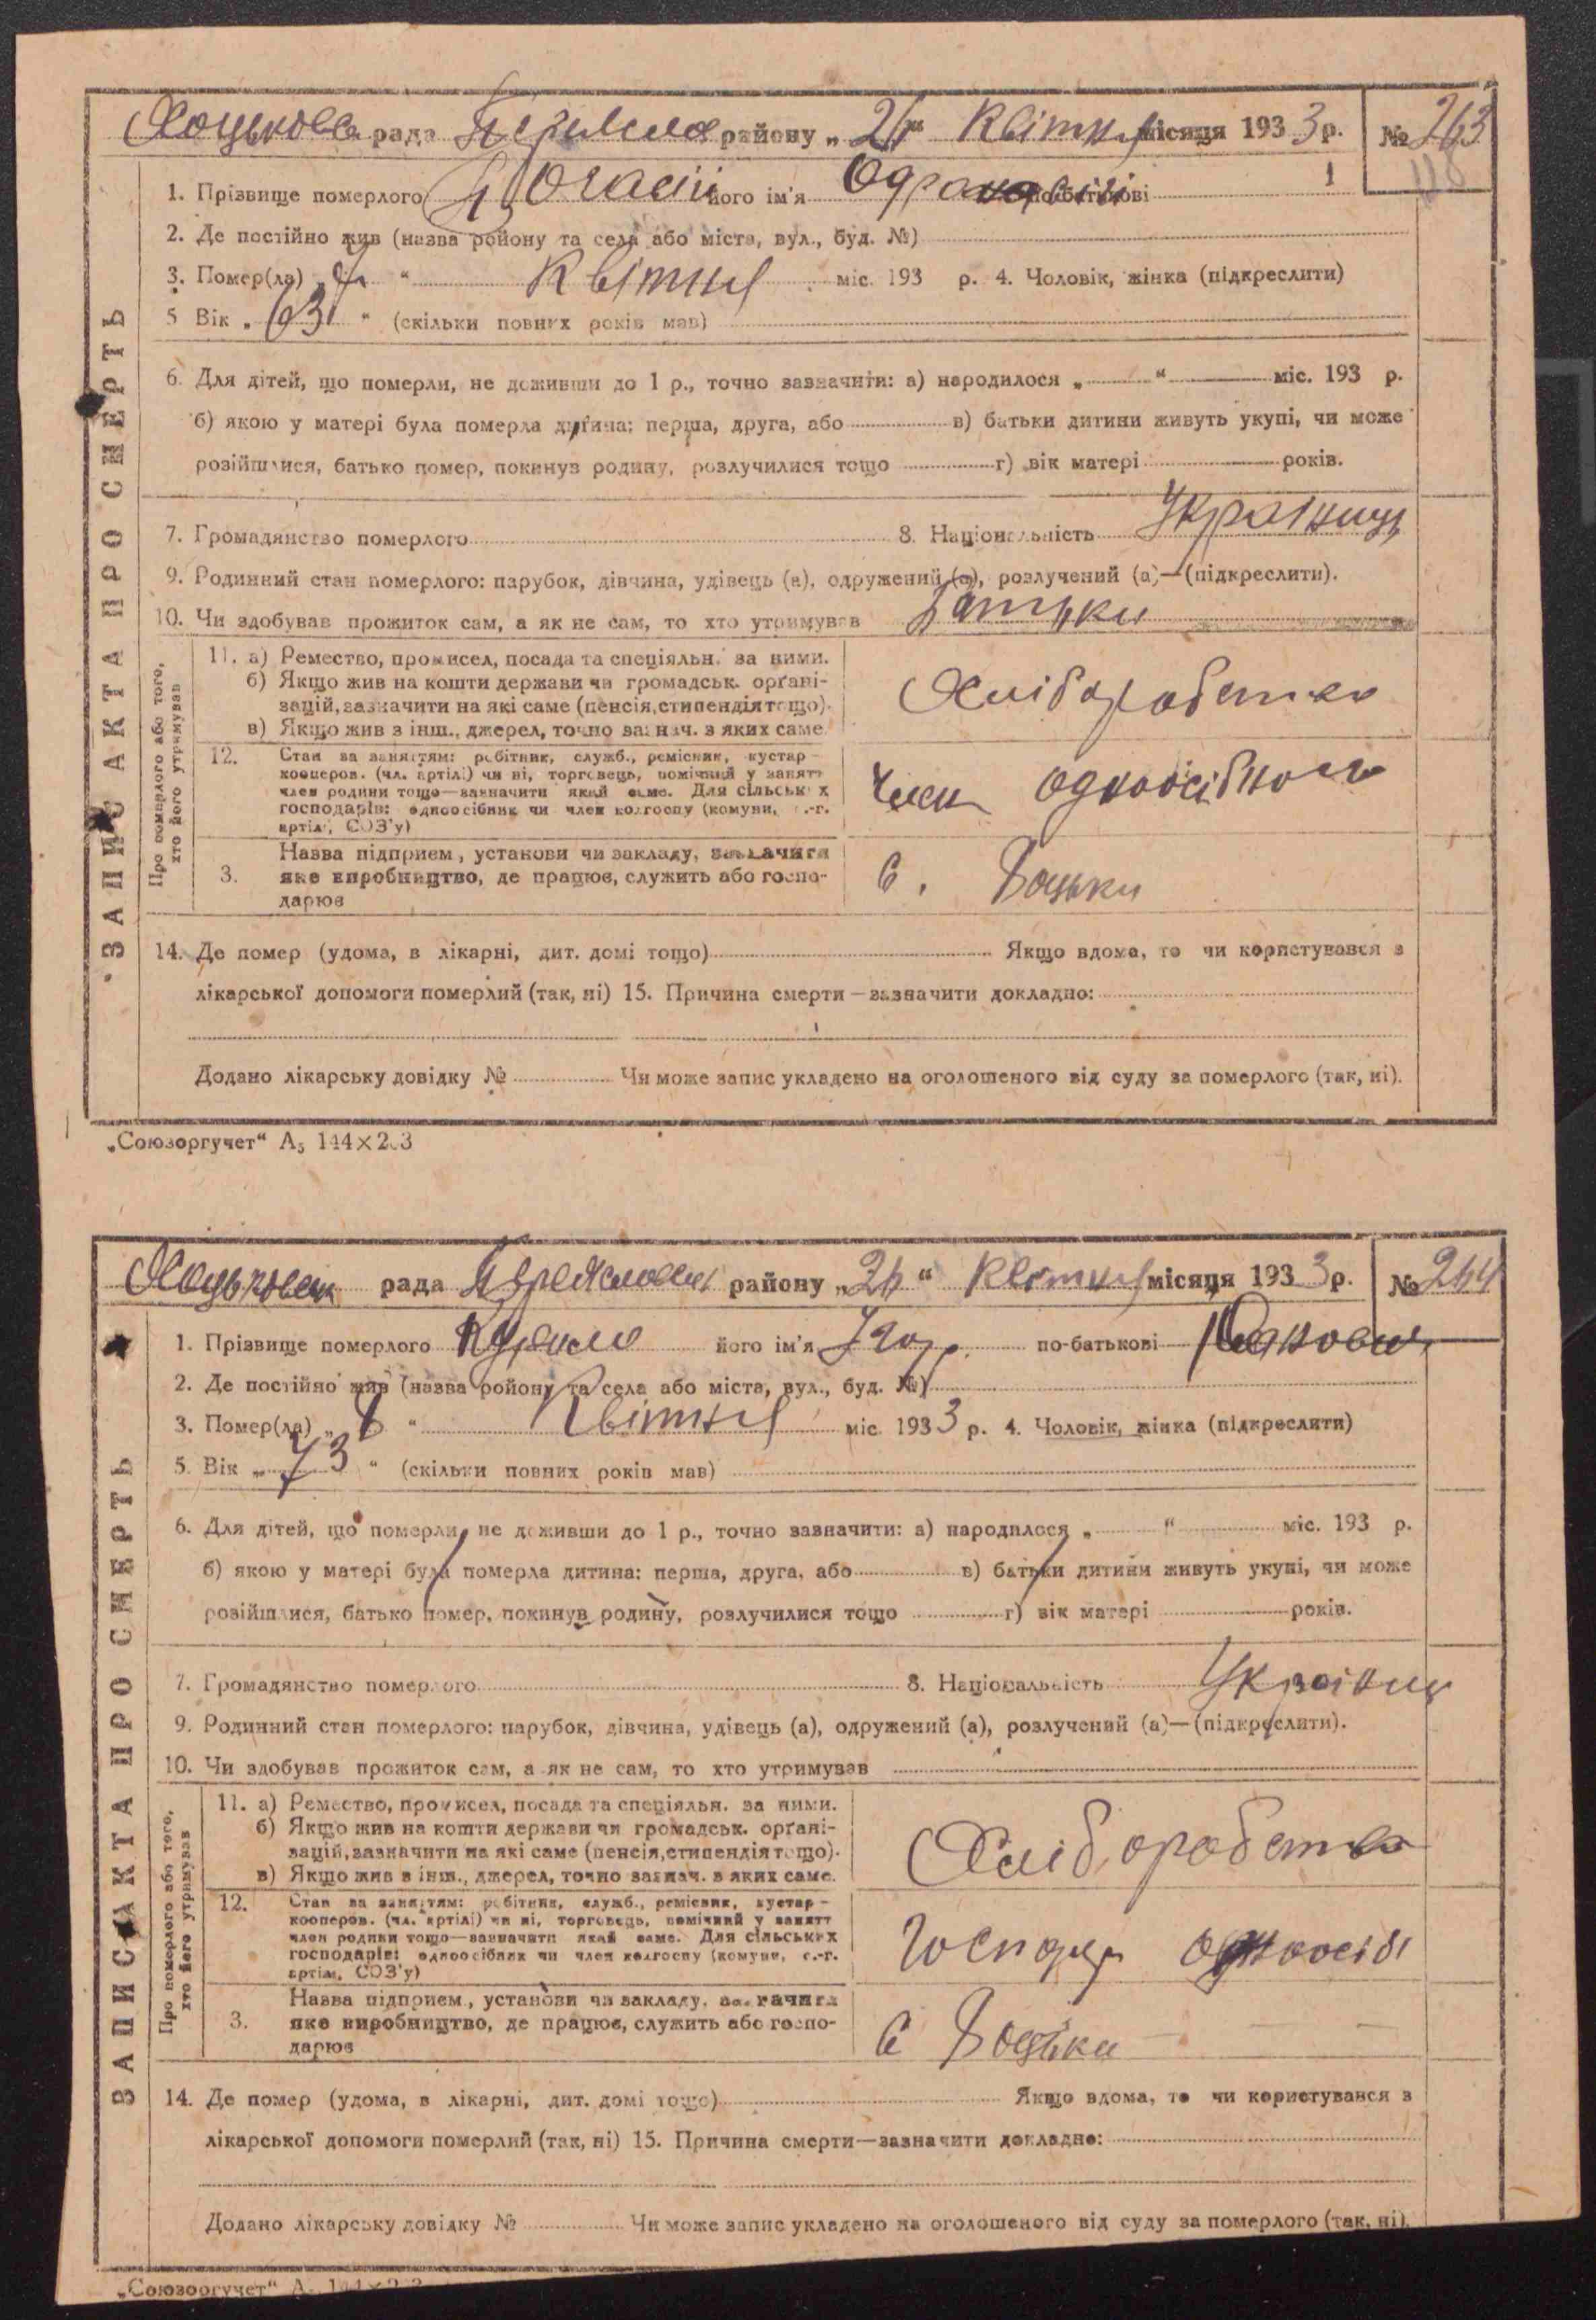 Хоцьковс рада Переясла району „26“ Квітня місяця 193 3 р. № 263
118
1. Прізвище померлого його ім'я по-батькові
2. Де постійно жив (назва району та села або міста, вул., буд. №)
3. Помер(ла) „ “ Квітня міс. 193 р. 4. Чоловік, жінка (підкреслити)
5 Вік „63“ (скільки повних років мав)
6. Для дітей, що померли, не доживши до 1 р., точно зазначити: а) народилося „ “ міс. 193 р.
б) якою у матері була померла дитина: перша, друга, або в) батьки дитини живуть укупі, чи може
розійшлися, батько помер, покинув родину, розлучилися тощо г) вік матері років.
7. Громадянство померлого 8. Національність Українць
9. Родинний стан померлого: парубок, дівчина, удівець (а), одружений (а), розлучений (а)—(підкреслити).
10. Чи здобував прожиток сам, а як не сам, то хто утримував Батьки
ЗАПИС АКТА ПРО СМЕРТЬ
Про померлого або того,
хто його утримував
11. а) Ремество, промисел, посада та спеціяльн. за ними.
б) Якщо жив на кошти держави чи громадськ. орґані-
зацій, зазначити на які саме (пенсія, стипендія тощо).
в) Якщо жив з інш., джерел, точно зазнач. з яких саме.
Хліборобство
12. Стан за заняттям: робітник, служб., ремісник, кустар-
кооперов. (чл. артілі) чи ні, торговець, помічний у занятт
член родини тощо—зазначити який саме. Для сільських
господарів: одноосібник чи член колгоспу (комуни, с.-г.
артіли, СОЗ'у)
член одноосібного
3. Назва підприєм., установи чи закладу, зазначити
яке виробництво, де працює, служить або госпо-
дарює
с. Воцьки
14. Де помер (удома, в лікарні, дит. домі тощо) Якщо вдома, то чи користувався з
лікарської допомоги померлий (так, ні) 15. Причина смерти—зазначити докладно:
Додано лікарську довідку № Чи може запис укладено на оголошеного від суду за померлого (так, ні).
„Союзоргучет“ А₅ 144×203
Хоцьковск рада Переясловск району „26“ Квітня місяця 193 3 р. № 264
1. Прізвище померлого Курило його ім'я Ягор по-батькові
2. Де постійно жив (назва району та села або міста, вул., буд. №)
3. Помер(ла) „ “ Квітня міс. 193 3 р. 4. Чоловік, жінка (підкреслити)
5. Вік „73“ (скільки повних років мав)
6. Для дітей, що померли, не доживши до 1 р., точно зазначити: а) народилося „ “ міс. 193 р.
б) якою у матері була померла дитина: перша, друга, або в) батьки дитини живуть укупі, чи може
розійшлися, батько помер, покинув родину, розлучилися тощо г) вік матері років.
7. Громадянство померлого 8. Національність Українць
9. Родинний стан померлого: парубок, дівчина, удівець (а), одружений (а), розлучений (а)—(підкреслити).
10. Чи здобував прожиток сам, а як не сам, то хто утримував
ЗАПИС АКТА ПРО СМЕРТЬ
Про померлого або того,
хто його утримував
11. а) Ремество, промисел, посада та спеціяльн. за ними.
б) Якщо жив на кошти держави чи громадськ. орґані-
зацій, зазначити на які саме (пенсія, стипендія тощо).
в) Якщо жив з інш., джерел, точно зазнач. з яких саме.
Хліборобство
12. Стан за заняттям: робітник, служб., ремісник, кустар-
кооперов. (чл. артілі) чи ні, торговець, помічний у занятт
член родини тощо—зазначити який саме. Для сільських
господарів: одноосібник чи член колгоспу (комуни, с.-г.
артіли, СОЗ'у)
Господар одноосіб
3. Назва підприєм., установи чи закладу, зазначити
яке виробництво, де працює, служить або госпо-
дарює
с Воцьки
14. Де помер (удома, в лікарні, дит. домі тощо) Якщо вдома, то чи користувався з
лікарської допомоги померлий (так, ні) 15. Причина смерти—зазначити докладно:
Додано лікарську довідку № Чи може запис укладено на оголошеного від суду за померлого (так, ні).
„Союзоргучет“ А₅ 144×203